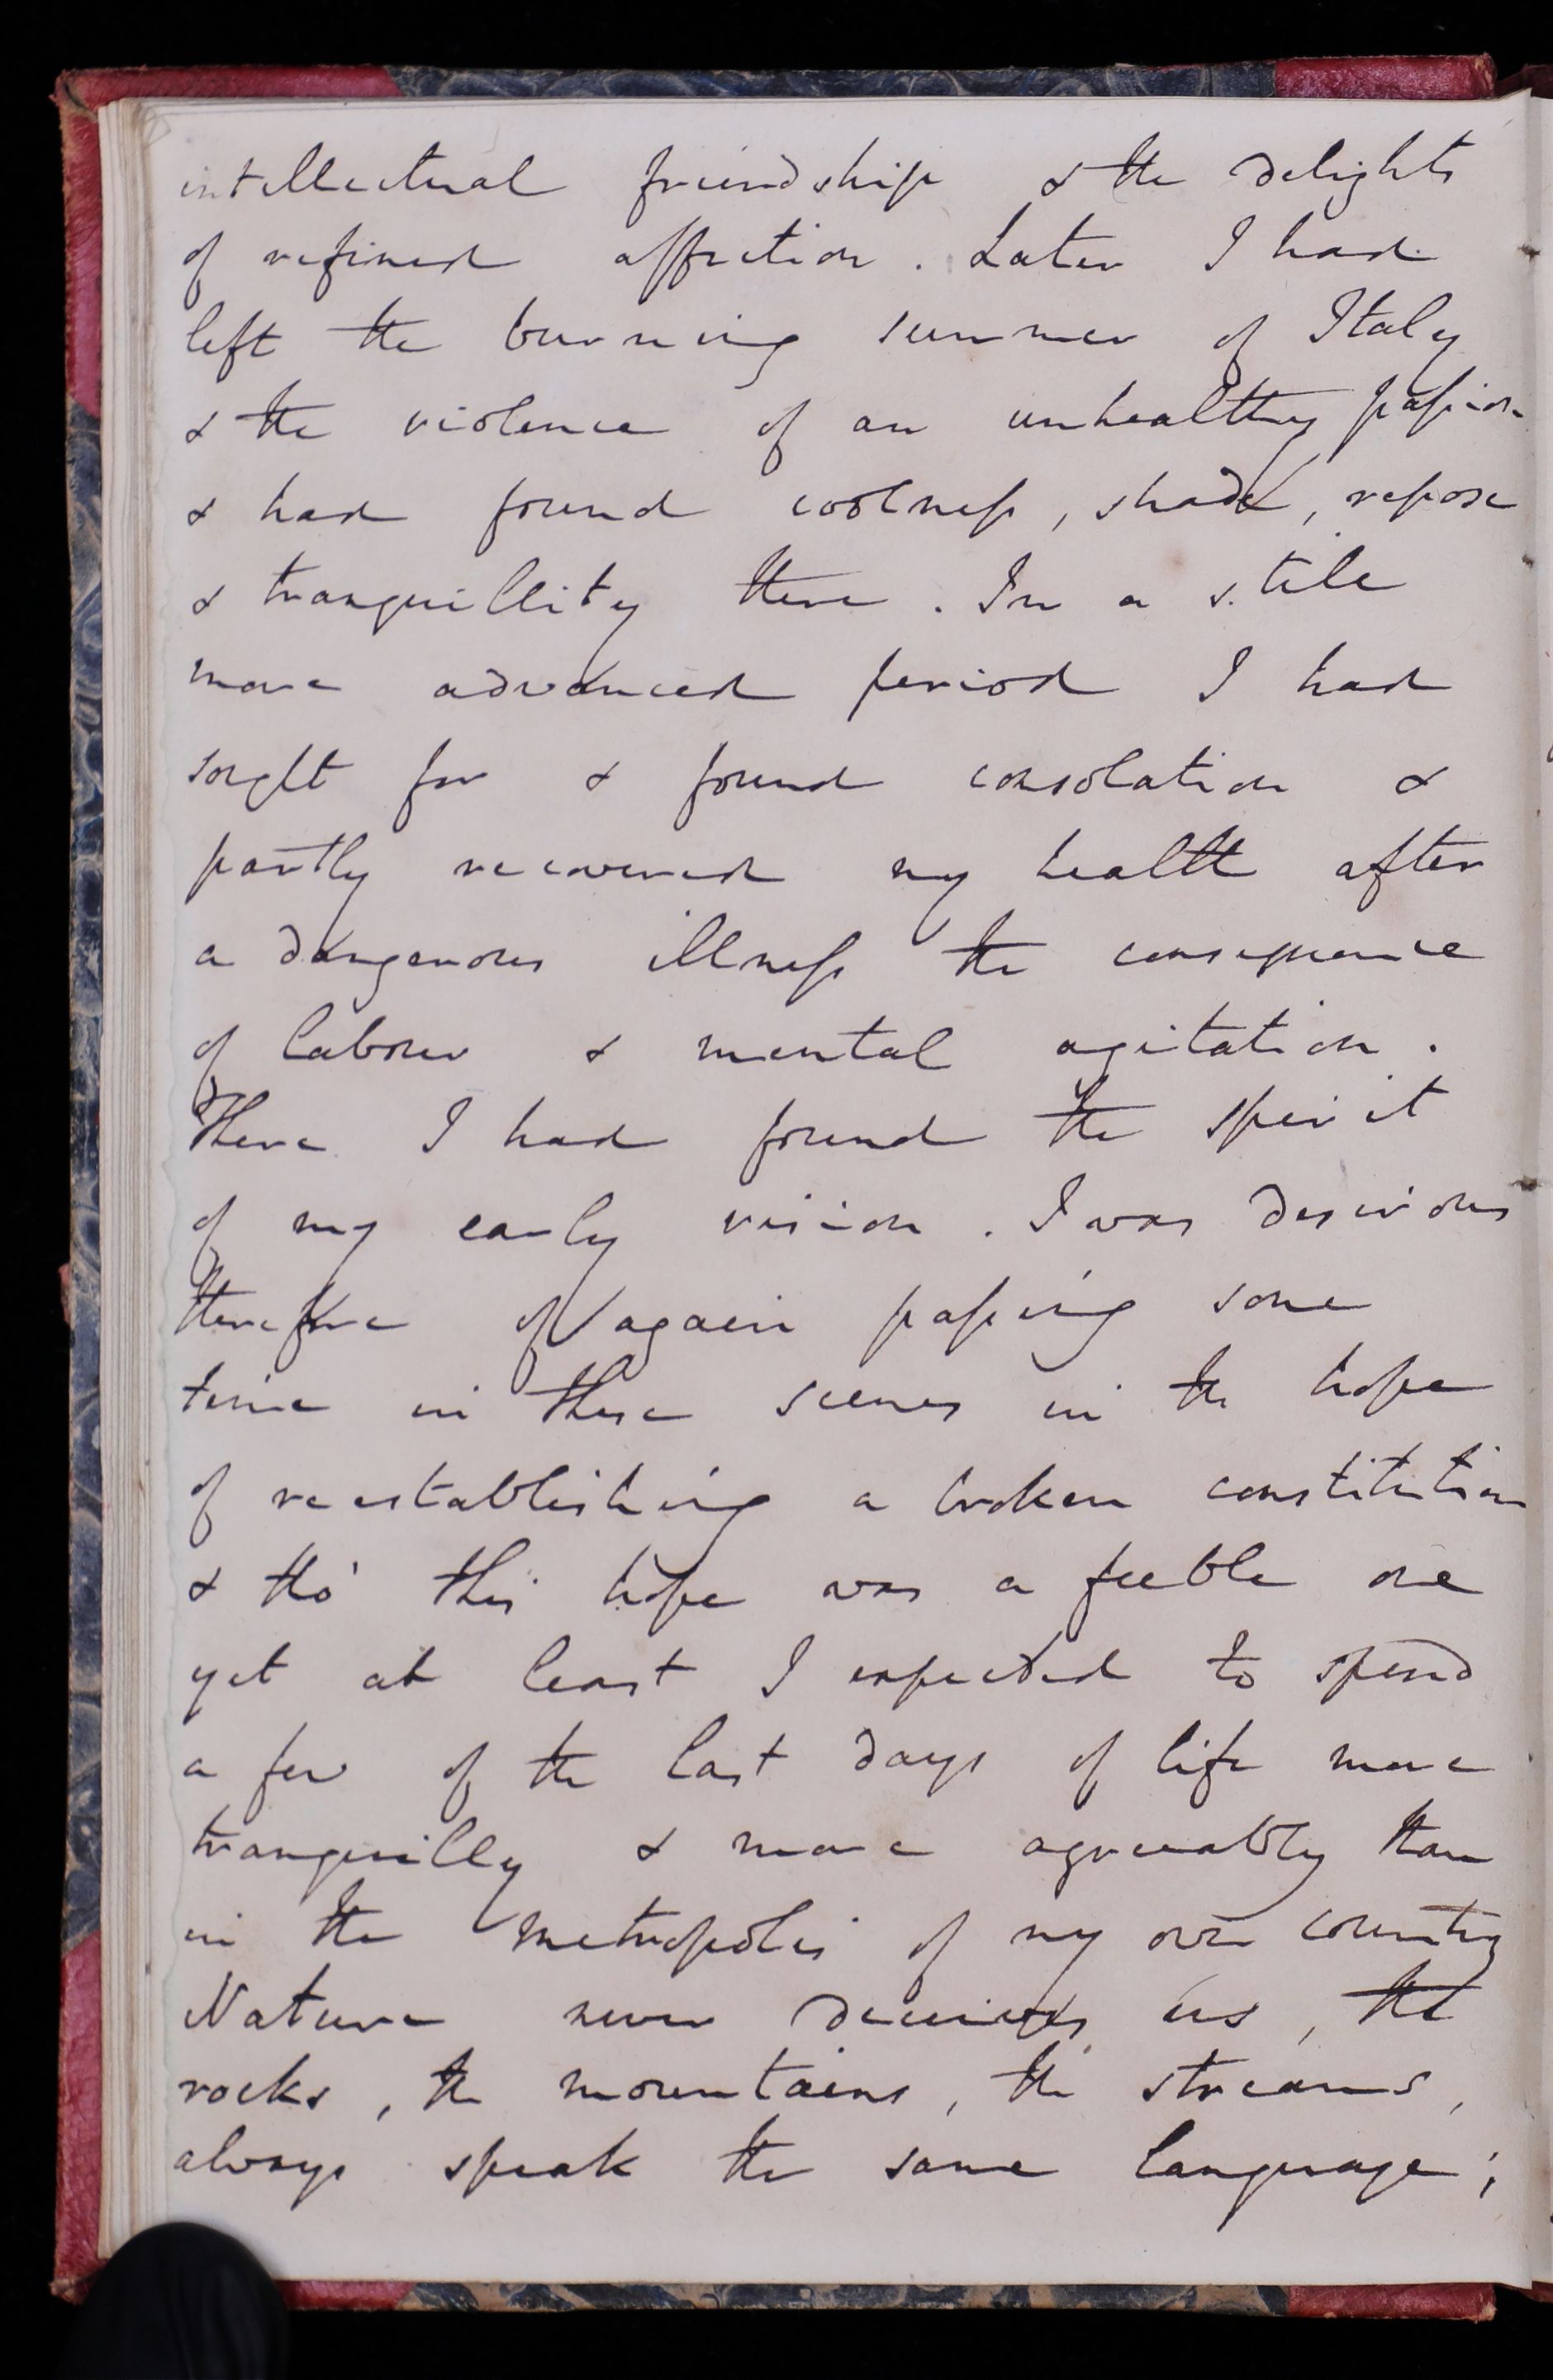 intellectual friendship & the delights
of refined affection. Later I had
left the burning summer of Italy
& the violence of an unhealthy passion
& had found coolness, shade, repose
& tranquillity there. In a still
more advanced period I had
sought for & found consolation &
partly recovered my health after
a dangerous illness the consequence
of labour & mental agitation.
There I had found the spirit
of my early vision. I was desirous
therefore of again passing some
time in these scenes in the hope
of reestablishing a broken constitution
& tho' this hope was a feeble one
yet at least I expected to spend
a few of the last days of life more
tranquilly & more agreeably than
in the metropolis of my own country
Nature never deceives us, the
rocks, the mountains, the streams,
always speak the same language;